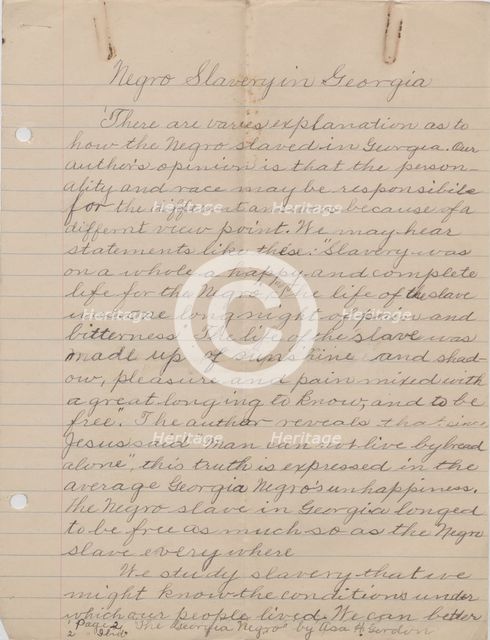 Negro Slavery in Georgia
There are varies explanation as to
how the Negro slaved in Georgia. Our
author's opinion is that the person-
ality and race may be responsibile
for the different answers because of a
differnt view point. We may hear
statements like these: "Slavery was
on a whole a happy and complete
life for the Negro", "The life of the slave
was one long night of pain and
bitterness" "The life of the slave was
made up of sunshine and shad-
ow, pleasure and pain mixed with
a great longing to know, and to be
free". The author reveals that since
Jesus said "Man can not live by bread
alone", this truth is expressed in the
average Georgia Negro's unhappiness.
The Negro slave in Georgia longed
to be free as much so as the Negro
slave everywhere
We study slavery that we
might know the conditions under
which our people lived. We can better
Page 2 "The Georgia Negro" by Asa H. Gordon
2 Ibid
Heritage Images